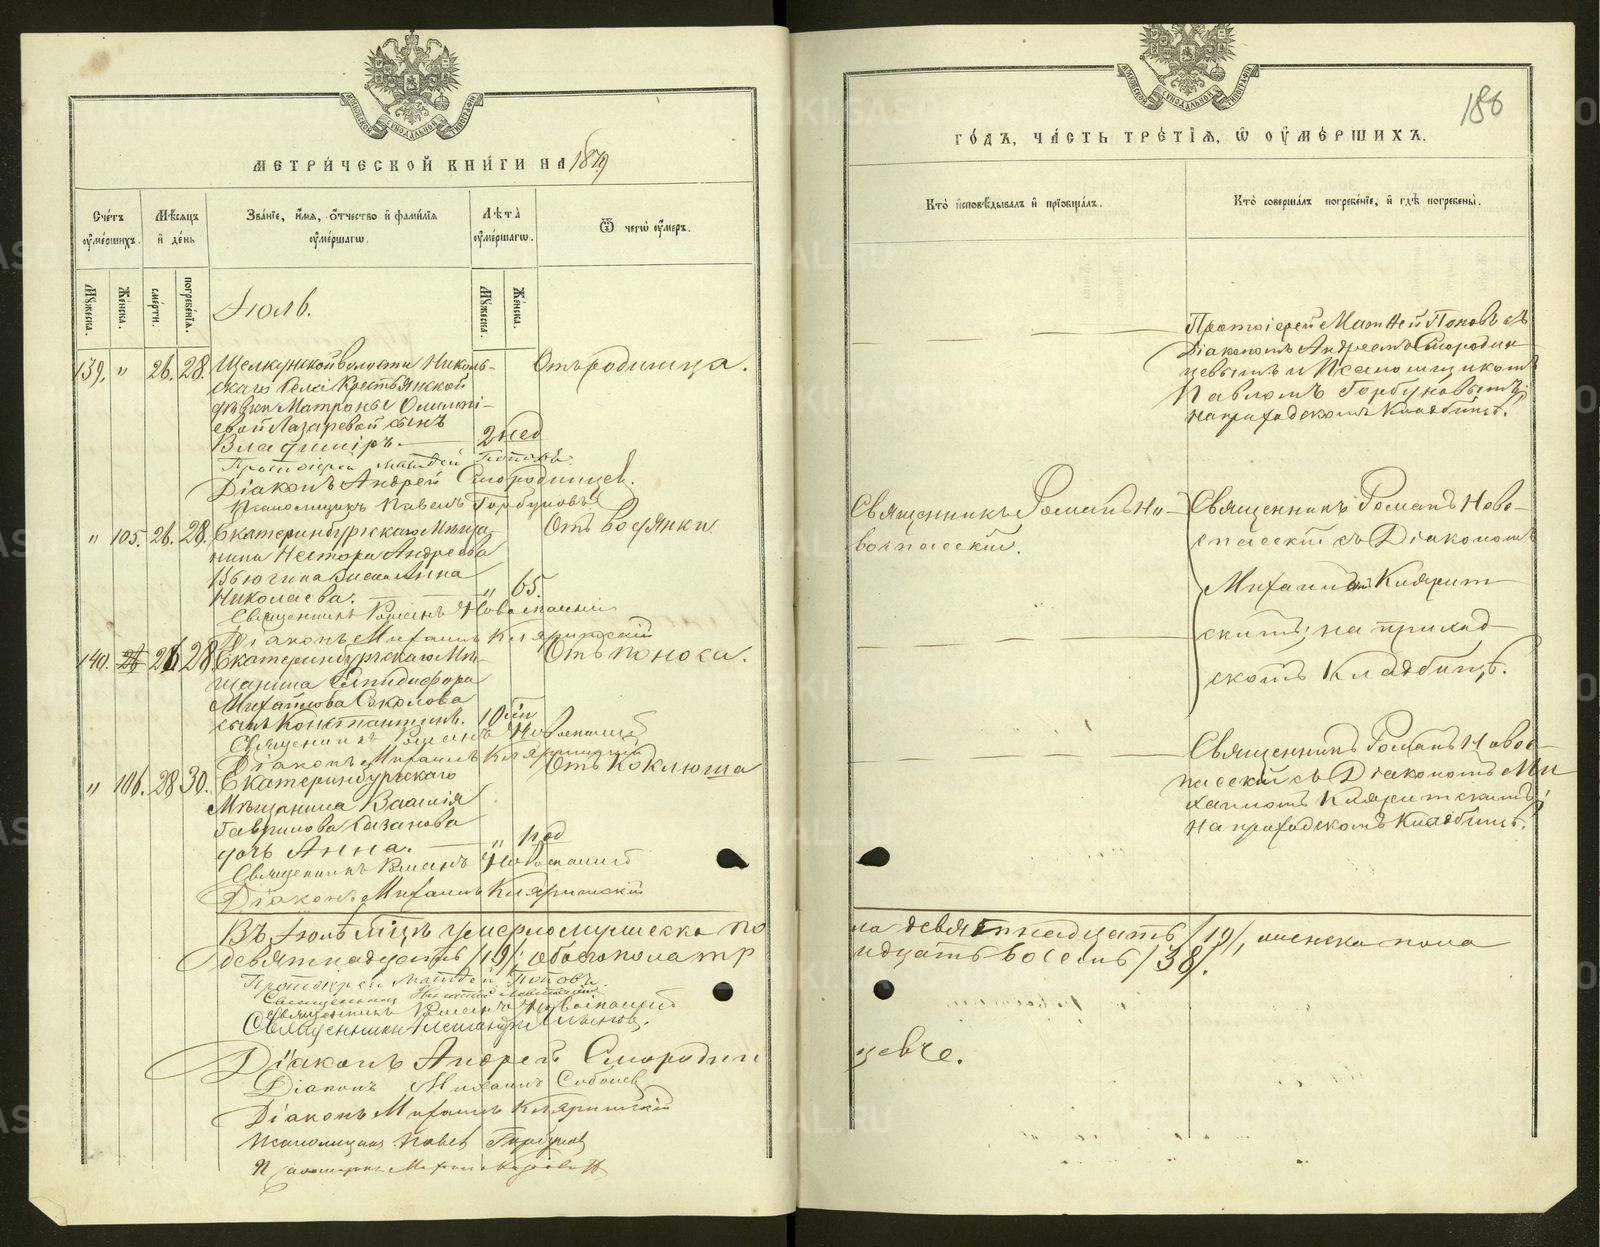 МЕТРИ́ЧЕСКОЙ КНИ́ГИ НА 1879
Сче́тъ ѹ҆ме́ршихъ.
Мѣ́сяцъ и҆ де́нь
Зва́нїе, и҆́мя, ѻ҆́тчество и҆ фами́лїя ѹ҆ме́ршагѡ.
Лѣ́та ѹ҆ме́ршагѡ.
Ѿ чегѡ̀ ѹ҆́меръ.
Мꙋ́жеска.
Же́нска.
сме́рти.
погребе́нїя.
Мꙋ́жеска.
Же́нска.
Іюль.
139. " 26. 28. Щелкунской волости Николь-
скаго села Крестьянской
дѣвки Матроны Олимпі-
евой Лазаревой сынъ
Владиміръ. — 2 нед
Отъ родимца.
Протоіерей Матѳей Поповъ
Діаконъ Андрей Смородинцев.
Псаломщикъ Павелъ Горбуновъ
" 105. 26. 28. Екатеринбургскаго мѣща-
нина Нестора Андреева
Вьюгина жена Анна
Николаева. — " 65.
Отъ водянки
Священникъ Романъ Новоспасскій
Діаконъ Михаилъ Кляритскій
140. 26 28 Екатеринбургскаго Мѣ-
щанина Елпидифора
Михайлова Соколова
сынъ Константинъ. 10 дн
Отъ поноса.
Священникъ Романъ Новоспасскій
Діаконъ Михаилъ Кляритскій
" 106. 28 30. Екатеринбургскаго
Мѣщанина Василія
Гаврилова Казанова
дочь Анна. — " 1 год
Отъ коклюша
Священникъ Романъ Новоспасскій
Діаконъ Михаилъ Кляритскій
Въ Іюлѣ мѣсяцѣ умерло мужеска по
девятнадцать /19/, обоего пола тр
Протоіерей Матѳей Поповъ.
Священникъ
Священникъ Романъ Новоспасскій
Священникъ Александръ
Діаконъ Андрей Смородин
Діаконъ Михаилъ
Діаконъ Михаилъ Кляритскій
Псаломщикъ Павелъ Горбунов
Псаломщикъ
186
ГО́ДЪ, ЧА́СТЬ ТРЕ́ТЇѦ, Ѡ҆ ОУ҆МЕ́РШИХЪ.
Кто̀ и҆сповѣ́дывалъ и҆ прїѻбща́лъ.
Кто̀ соверша́лъ погребе́нїе, и҆ гдѣ̀ погребены̀.
Протоіерей Матѳей Поповъ съ
Діакономъ Андреемъ Смородин
цевымъ и Псаломщикомъ
Павломъ Горбуновымъ;
на приходскомъ Кладбищѣ.
Священникъ Романъ Но-
воспасскій.
Священникъ Романъ Ново-
спасскій съ Діакономъ
Михаиломъ Клярит
скимъ; на приход
скомъ Кладбищѣ.
Священникъ Романъ Новос-
пасскій съ Діакономъ Ми
хаиломъ Кляритскимъ;
на приходскомъ Кладбищѣ.
ла девятнадцать /19/, женска пола
идцать восемь /38/.
цевъ.